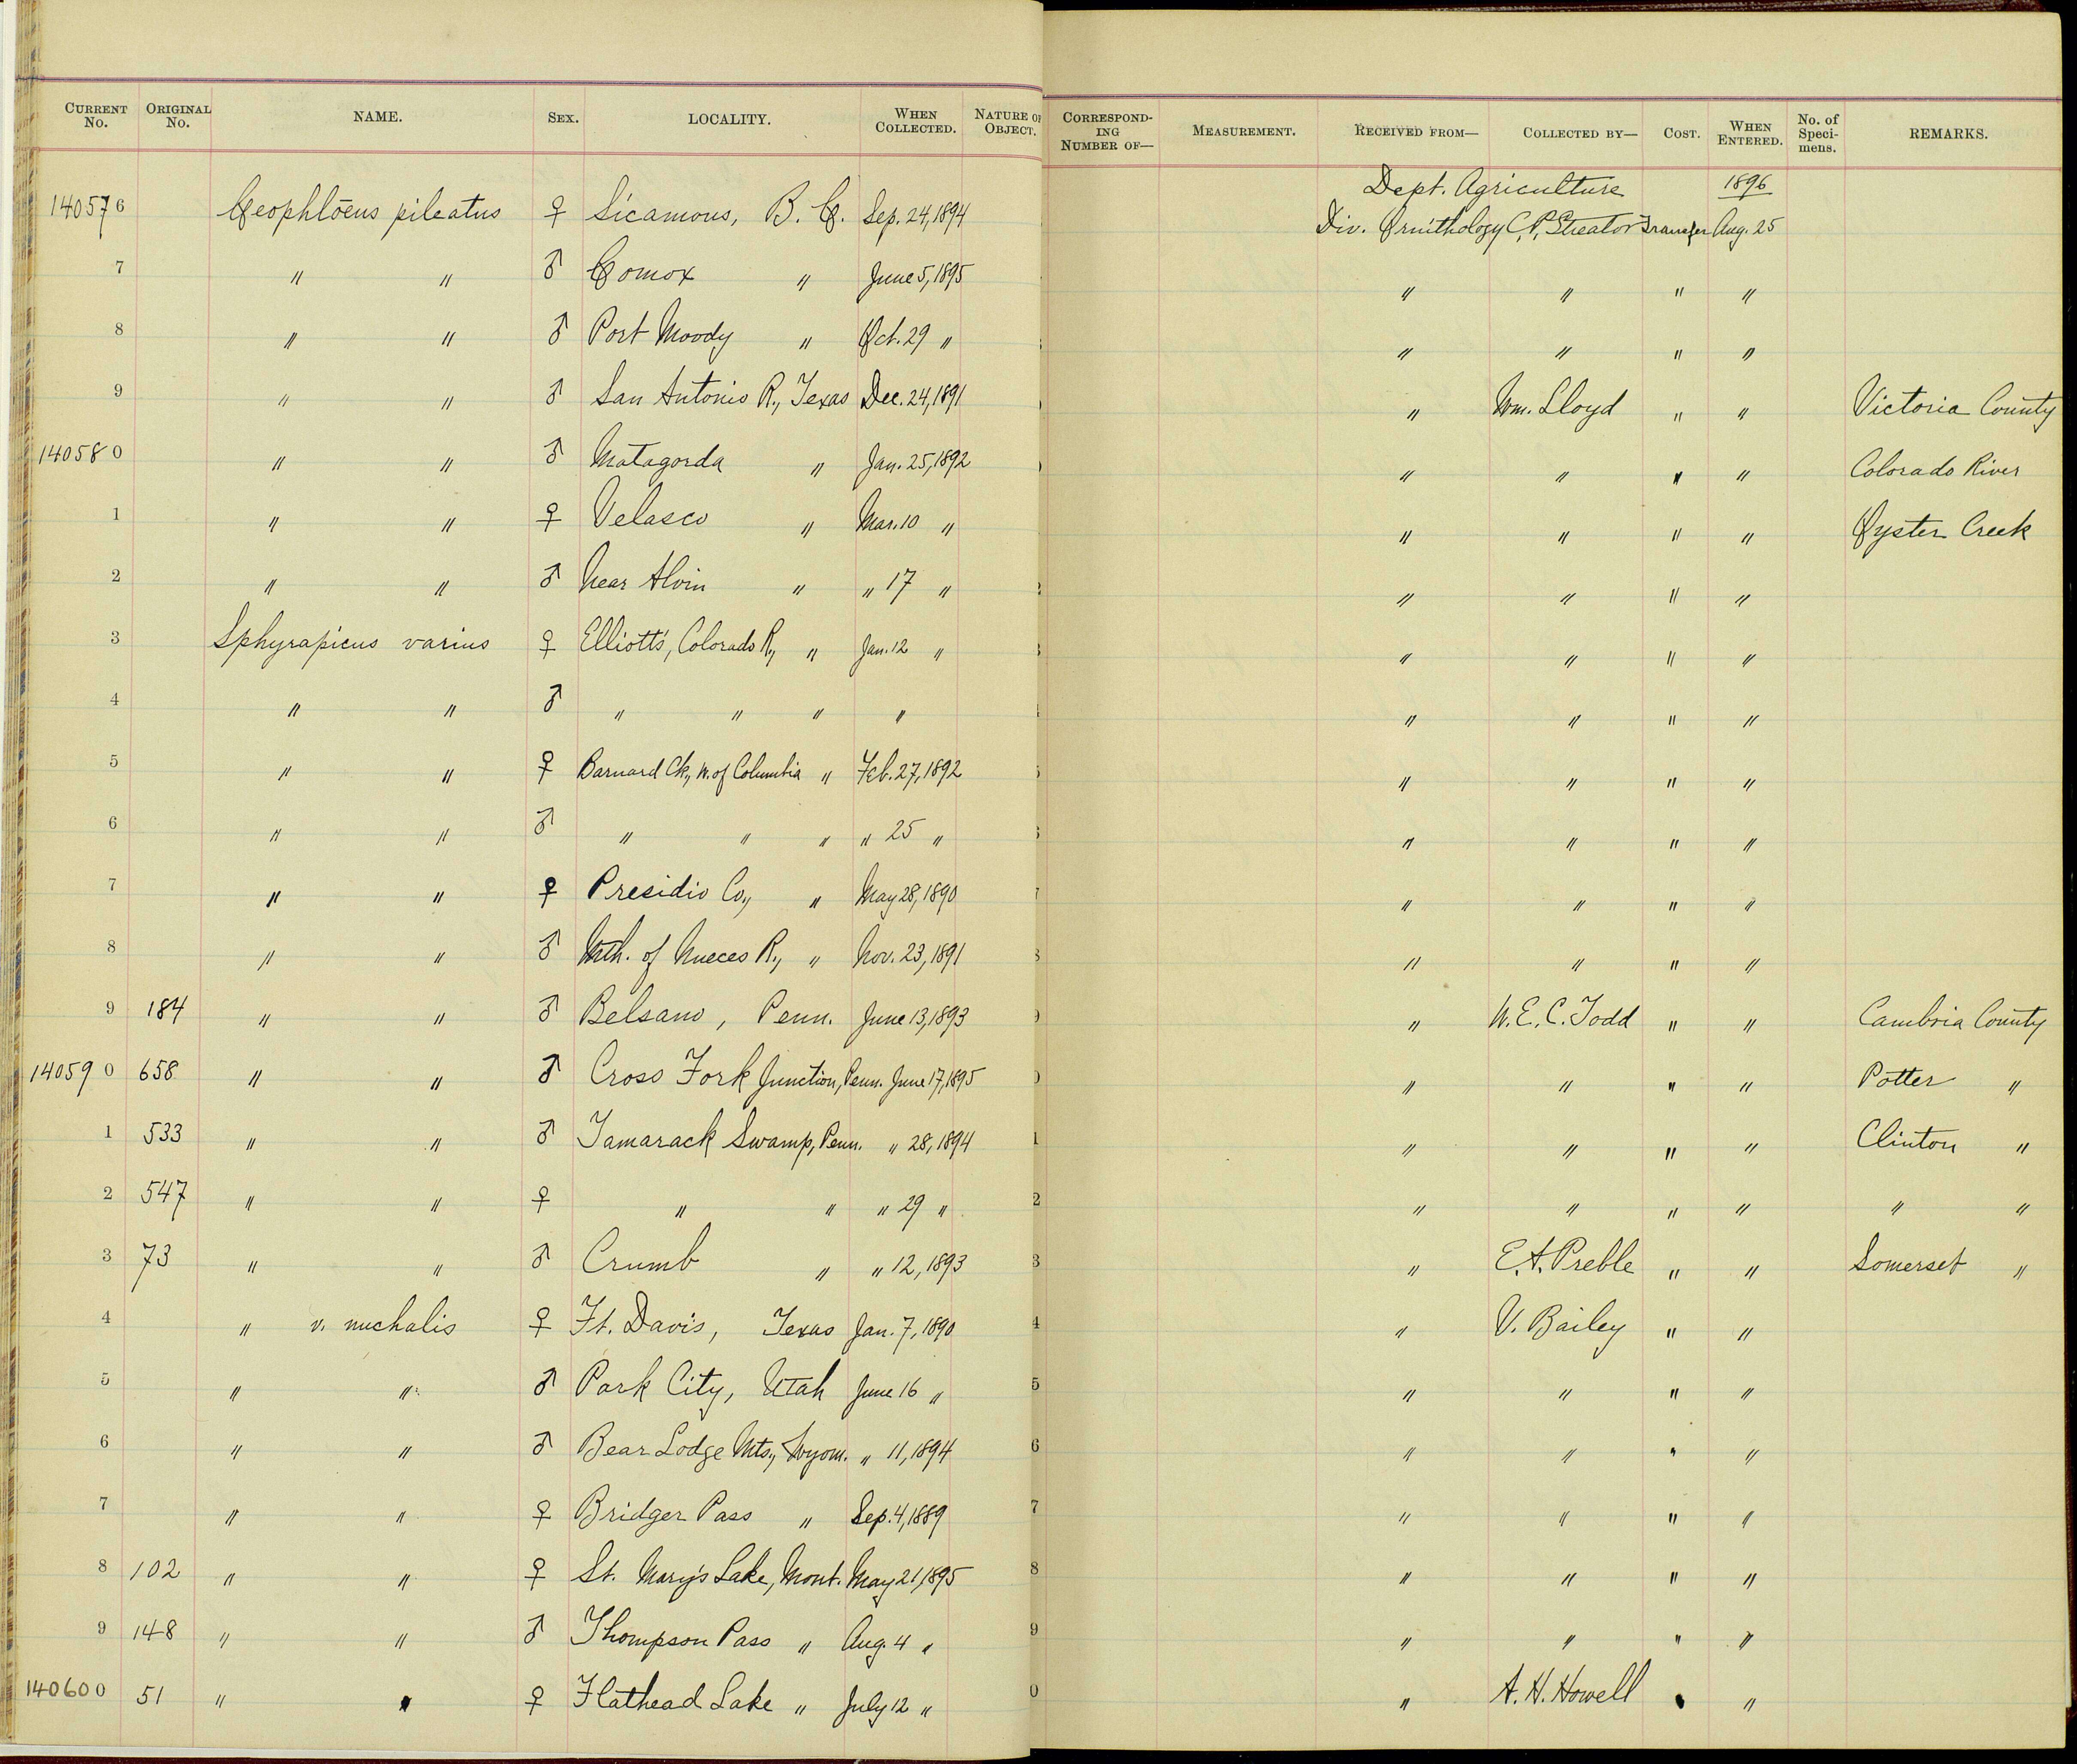 CURRENT No. ORIGINAL No. NAME. SEX. LOCALITY. WHEN COLLECTED. NATURE OF OBJECT. CORRESPONDING NUMBER OF— MEASUREMENT. RECEIVED FROM— COLLECTED BY— COST. WHEN ENTERED. No. of Specimens. REMARKS.
Dept. Agriculture 1896
140576 Ceophlœus pileatus ♀ Sicamous, B. C. Sep. 24, 1894 Div. Ornithology C. P. Streator Transfer Aug. 25
7 " " ♂ Comox " June 5, 1895 " " " "
8 " " ♂ Port Moody " Oct. 29 " " " " "
9 " " ♂ San Antonio R., Texas Dec. 24, 1891 " Wm. Lloyd " " Victoria County
140580 " " ♂ Matagorda " Jan. 25, 1892 " " " " Colorado River
1 " " ♀ Velasco " Mar. 10 " " " " " Oyster Creek
2 " " ♂ Near Alvin " " 17 " " " " "
3 Sphyrapicus varius ♀ Elliott's, Colorado R., " Jan. 12 " " " " "
4 " " ♂ " " " " " " " "
5 " " ♀ Barnard Ck., W. of Columbia " Feb. 27, 1892 " " " "
6 " " ♂ " " " " 25 " " " " "
7 " " ♀ Presidio Co., " May 28, 1890 " " " "
8 " " ♂ Mth. of Nueces R., " Nov. 23, 1891 " " " "
9 184 " " ♂ Belsano, Penn. June 13, 1893 " W. E. C. Todd " " Cambria County
140590 658 " " ♂ Cross Fork Junction, Penn. June 17, 1895 " " " " Potter "
1 533 " " ♂ Tamarack Swamp, Penn. " 28, 1894 1 " " " " Clinton "
2 547 " " ♀ " " " 29 " 2 " " " " " "
3 73 " " ♂ Crumb " " 12, 1893 3 " E. A. Preble " " Somerset "
4 " v. nuchalis ♀ Ft. Davis, Texas Jan. 7, 1890 4 " V. Bailey " "
5 " " ♂ Park City, Utah June 16 " 5 " " " "
6 " " ♂ Bear Lodge Mts., Wyom. " 11, 1894 6 " " " "
7 " " ♀ Bridger Pass " Sep. 4, 1889 7 " " " "
8 102 " " ♀ St. Mary's Lake, Mont. May 21, 1895 8 " " " "
9 148 " " ♂ Thompson Pass " Aug. 4 " 9 " " " "
140600 51 " " ♀ Flathead Lake " July 12 " 0 " A. H. Howell " "